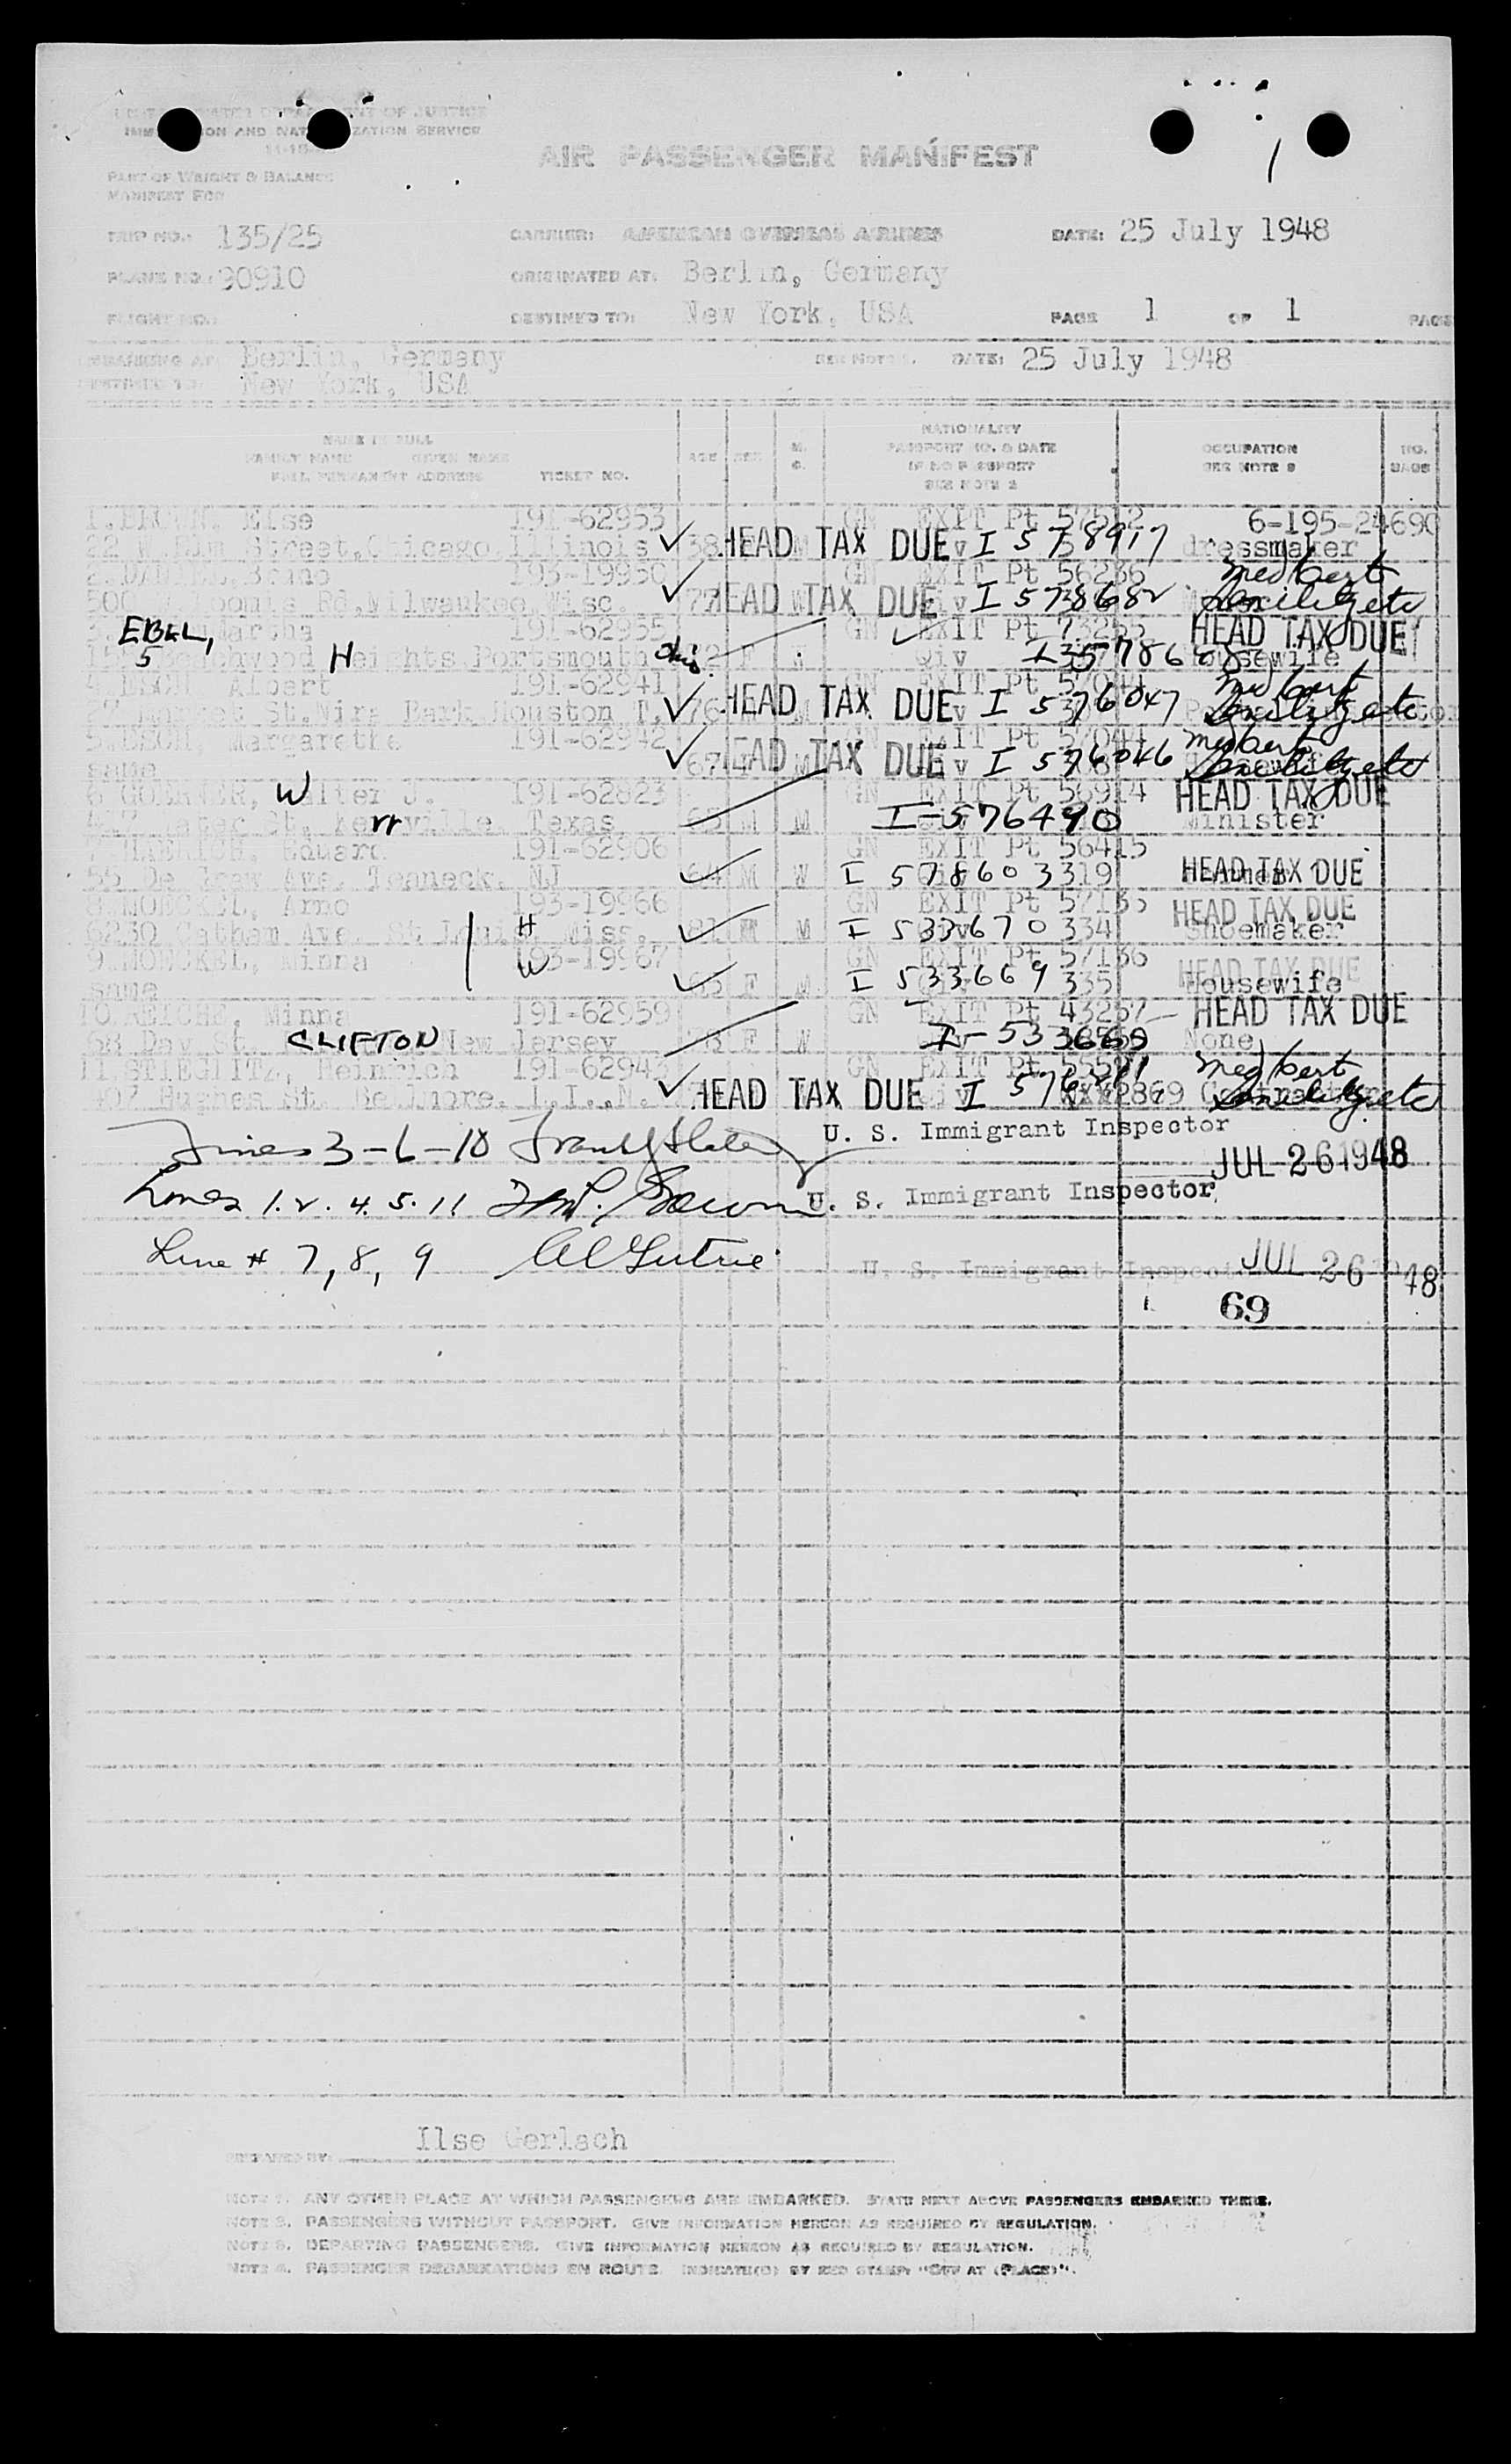 DEPARTMENT OF JUSTICE
IMMIGRATION AND NATURALIZATION SERVICE
AIR PASSENGER MANIFEST
1
PART OF WEIGHT & BALANCE
MANIFEST FOR
TRIP NO.: 135/25 CARRIER: AMERICAN OVERSEAS AIRLINES DATE: 25 July 1948
PLANE NO.: 90910 ORIGINATED AT: Berlin, Germany
FLIGHT NO.: DESTINED TO: New York, USA PAGE 1 OF 1 PAGE
EMBARKING AT: Berlin, Germany SEE NOTE 1. DATE: 25 July 1948
DESTINED TO: New York, USA
NAME IN FULL
FAMILY NAME GIVEN NAME
FULL PERMANENT ADDRESS TICKET NO. AGE SEX M. S. NATIONALITY PASSPORT NO. & DATE IF NO PASSPORT SEE NOTE 2 OCCUPATION SEE NOTE 3 NO. BAGS
1. BROWN, Else 191-62953 GN EXIT Pt 6-195-24690
22 W Elm Street, Chicago, Illinois 38 HEAD TAX DUE I 578917 dressmaker
2. Bruno 193-19950 GN EXIT Pt 56236 Med cert
Rd, Milwaukee, Wisc. HEAD TAX DUE I 578682
EBEL, Martha 191-62955 GN EXIT Pt 73255 HEAD TAX DUE
5 Beachwood Heights Portsmouth Ohio F Civ Housewife
4. Albert 191-62941 GN EXIT Pt Med cert
St. Park Houston T. 76 HEAD TAX DUE I 576047
5. Margarethe 191-62942 GN EXIT Pt 57044 Med cert
same 67 HEAD TAX DUE I 576046
6 Walter J. 191-62823 GN EXIT Pt 56914 HEAD TAX DUE
St. Kerrville, Texas 65 M M I-576490 Minister
Eduard 191-62906 GN EXIT Pt 56415
Ave. Teaneck, NJ 64 M W I 578603 319 HEAD TAX DUE
8. MOECKEL, Arno 193-19966 GN EXIT Pt 57135 HEAD TAX DUE
6230 Ave. St Louis, Miss. H 81 M M I 533670 334 Shoemaker
9. MOECKEL, Minna 193-19967 GN EXIT Pt 57136 HEAD TAX DUE
same W 65 F M I 533669 335 Housewife
10 REICHE, Minna 191-62959 GN EXIT Pt 43257 HEAD TAX DUE
68 Day St. CLIFTON New Jersey F W None
11. STIEGLITZ, Heinrich GN EXIT Pt Med cert
Hughes St. Bellmore, L.I., N. HEAD TAX DUE
Lines 3-6-10 U. S. Immigrant Inspector
JUL 26 1948
Lines 1. 2. 4. 5. 11 U. S. Immigrant Inspector
Line # 7, 8, 9 U. S. Immigrant Inspector JUL 26 1948
69
PREPARED BY: Ilse Gerlach
NOTE 1. ANY OTHER PLACE AT WHICH PASSENGERS ARE EMBARKED. STATE NEXT ABOVE PASSENGERS EMBARKED THERE.
NOTE 2. PASSENGERS WITHOUT PASSPORT. GIVE INFORMATION HEREON AS REQUIRED BY REGULATION.
NOTE 3. DEPARTING PASSENGERS. GIVE INFORMATION HEREON AS REQUIRED BY REGULATION.
NOTE 4. PASSENGER DEBARKATIONS EN ROUTE. INDICATE(D) BY RED STAMP "OFF AT (PLACE)".